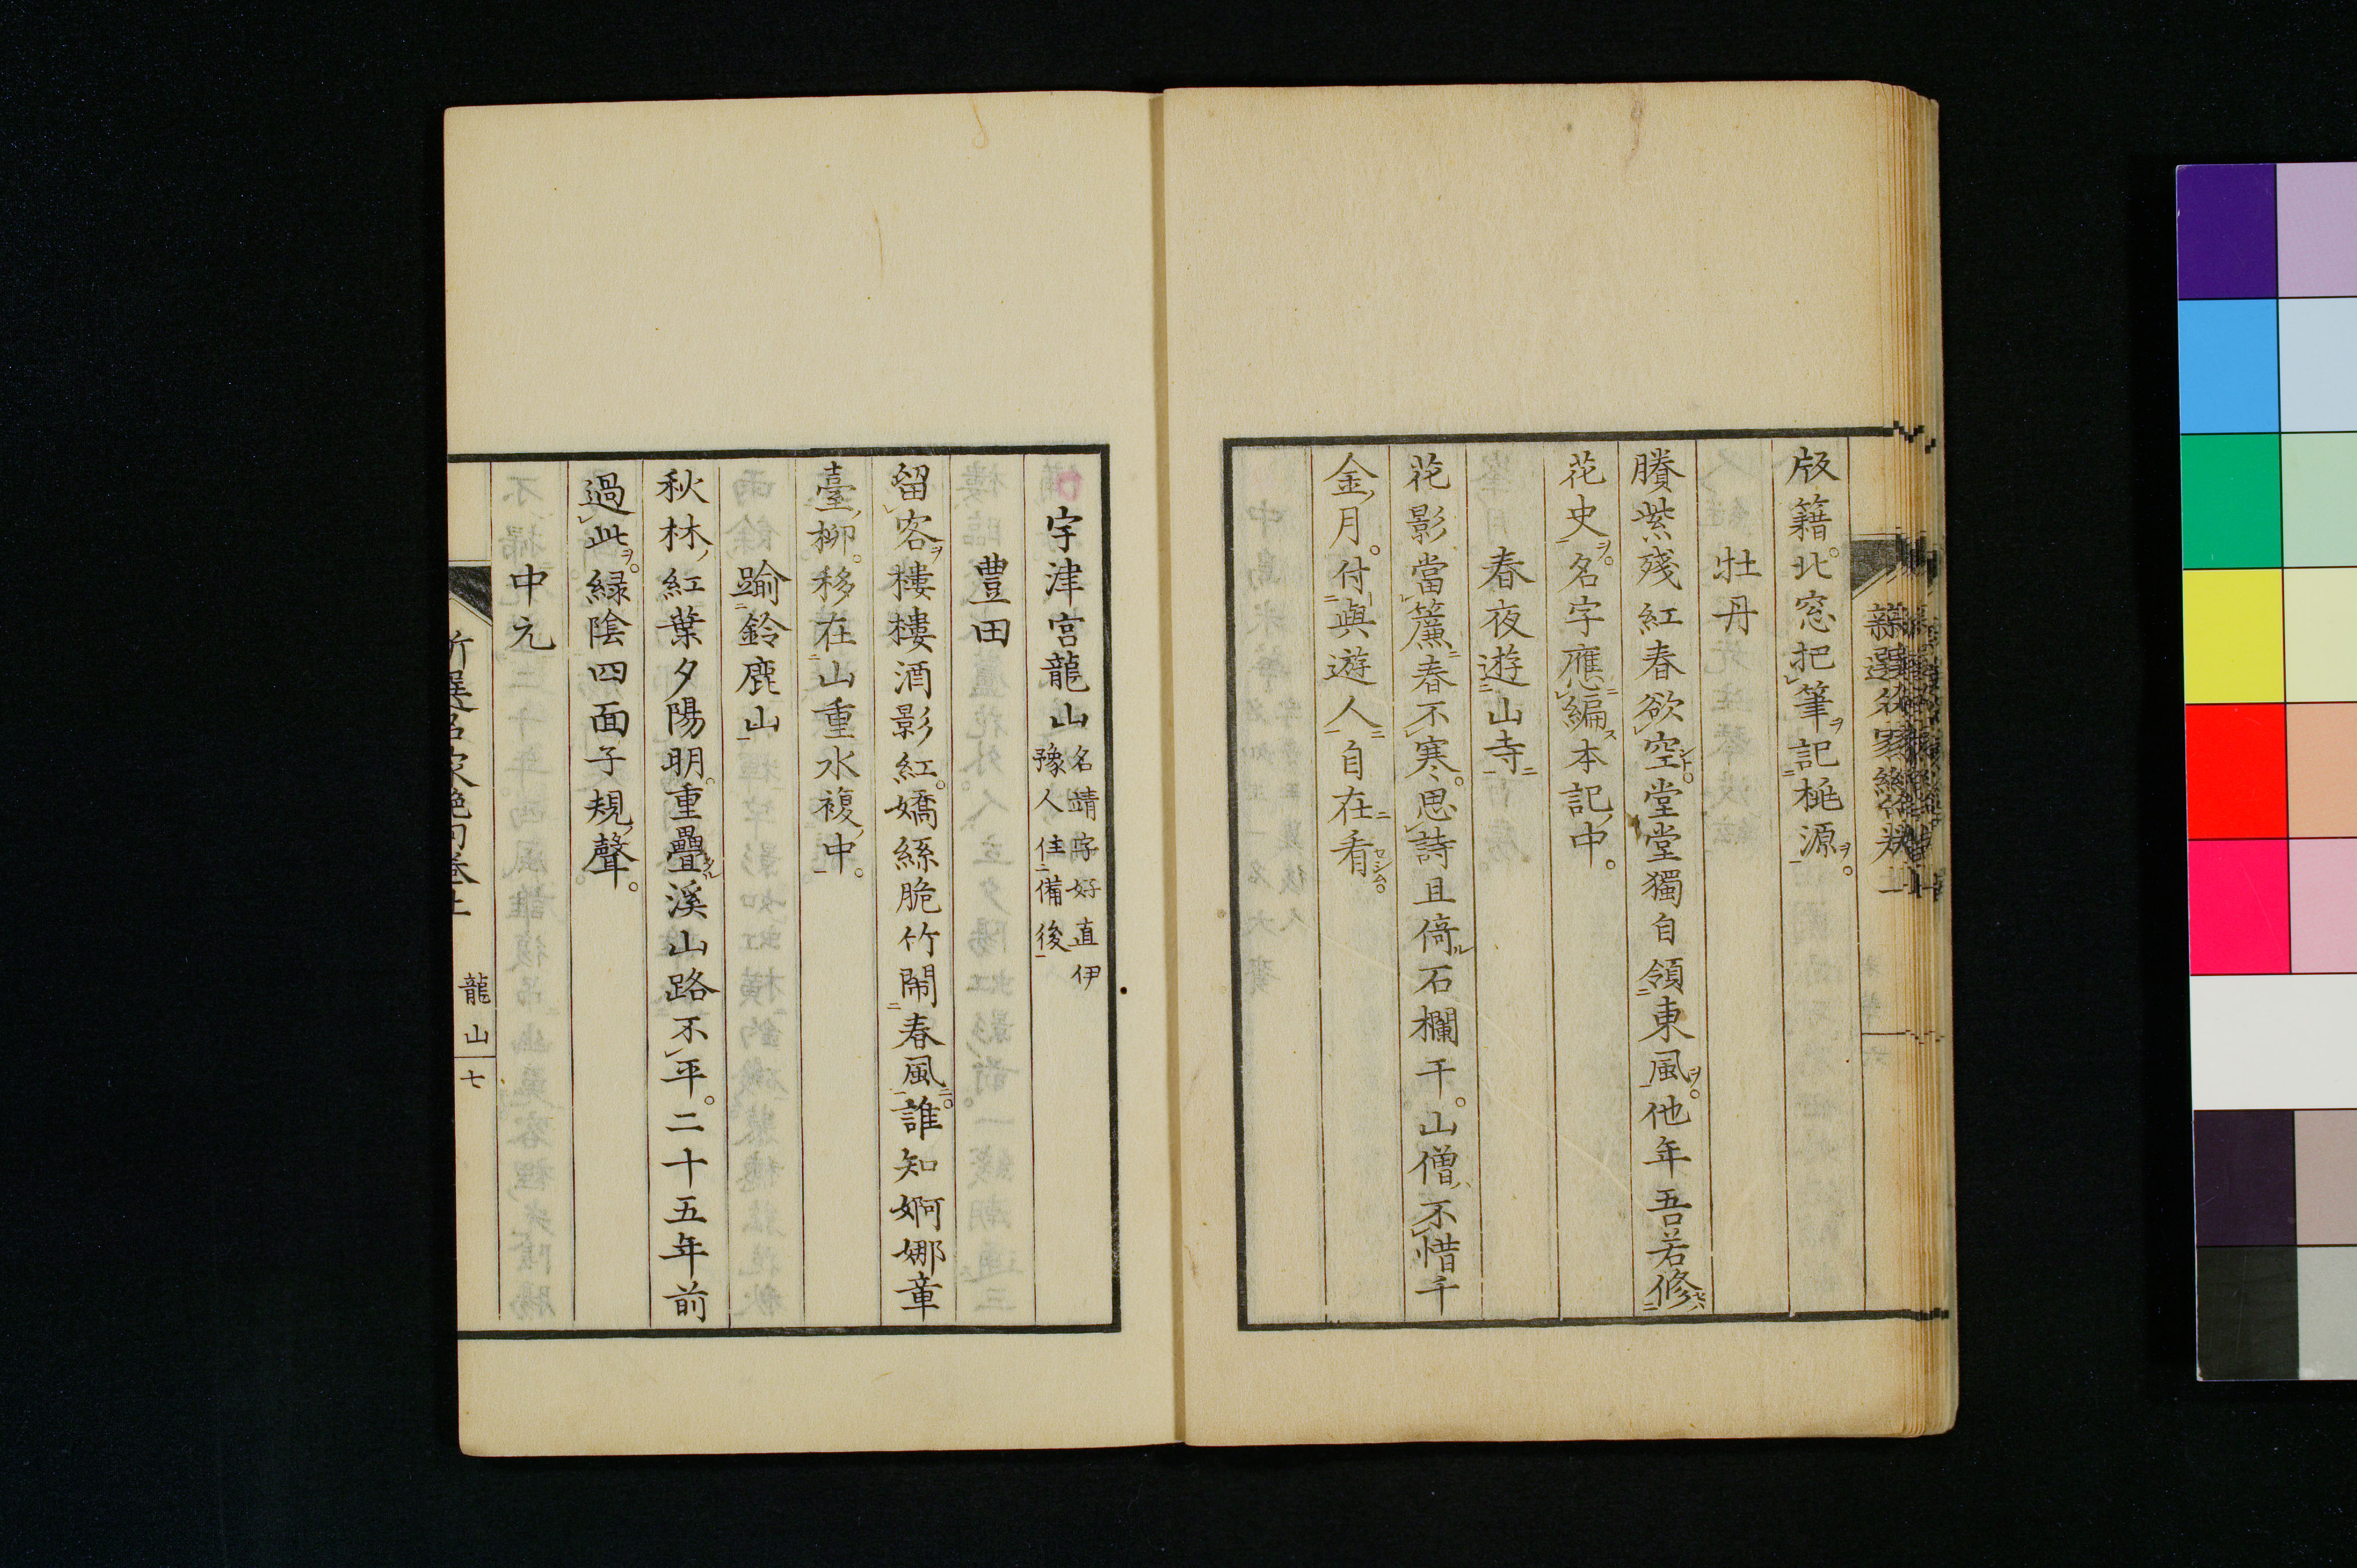 版籍。北窓把筆記桃源。
牡丹
賸紫殘紅春欲空。堂堂獨自領東風。他年吾若修
花史。名字應編本記中。
春夜遊山寺
花影當簾春不寒。思詩且倚石欄干。山僧不惜千
金月。付與遊人自在看。
宇津宮龍山 名靖字好直伊
豫人住備後
豊田
留客樓樓酒影紅。嬌絲脆竹鬧春風。誰知婀娜章
臺柳。移在山重水複中。
踰鈴鹿山
秋林紅葉夕陽明。重疊溪山路不平。二十五年前
過此。緑陰四面子規聲。
中元
龍山 七